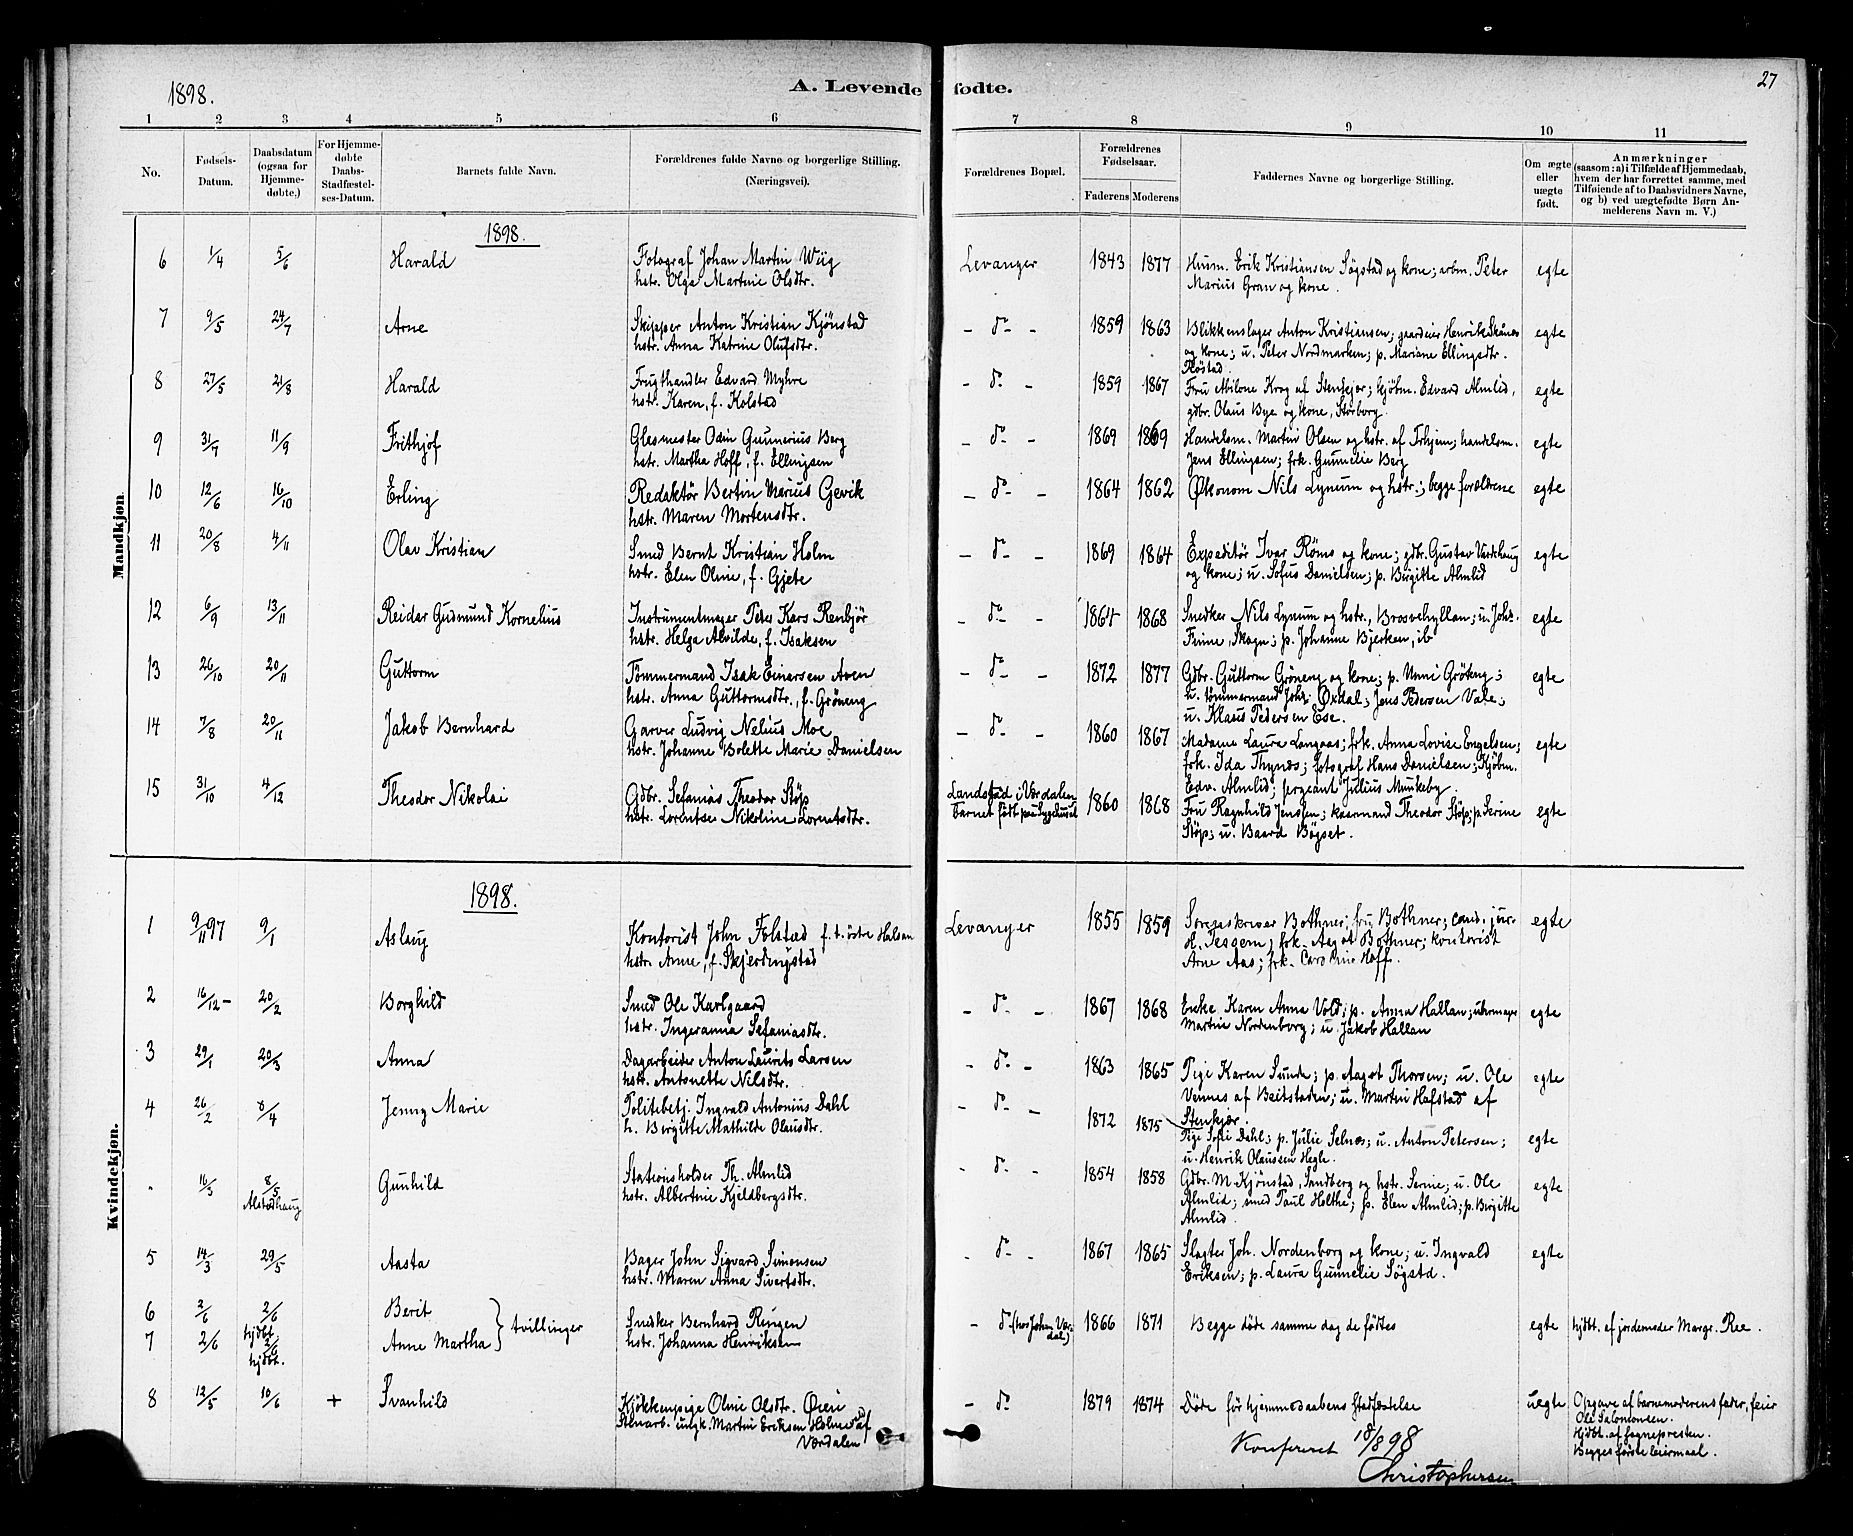 1898.
A. Levende fødte.
27
1 2 3 4 5 6 7 8 9 10 11
No.
Fødsels-Datum.
Daabsdatum (ogsaa for Hjemme-døbte.)
For Hjemme-døbte Daabs-Stadfæstel-ses-Datum.
Barnets fulde Navn.
Forældrenes fulde Navne og borgerlige Stilling.
(Næringsvei).
Forældrenes Bopæl.
Forældrenes Fødselsaar.
Faderens Moderens
Faddernes Navne og borgerlige Stilling.
Om ægte eller uægte født.
Anmærkninger
(saasom: a) i Tilfælde af Hjemmedaab,
hvem der har forrettet samme, med
Tilføiende af to Daabsvidners Navne,
og b) ved uægtefødte Børn An-
melderens Navn m. V.)
Mandkjøn.
1898.
6 1/4 5/6 Harald Fotograf Johan Martin Wiig Levanger 1843 1877 Husm. Erik Kristiansen Søgstad og kone; arbm. Peter egte
hstr. Olga Martine Olsdtr. Marius Gran og kone.
7 9/5 24/7 Arne Skipper Anton Kristian Kjønstad - do - 1859 1863 Blikkenslager Anton Kristiansen; gaardeier Henrik Skånes egte
hstr. Anna Katrine Olufsdtr. og kone; u. Peter Nordmarken; p. Mariane Ellingsdtr.
Røstad.
8 27/5 21/8 Harald Frugthandler Edvard Myhre - do - 1859 1867 Fru Milone Krog af Stenkjer; kjøbm. Edvard Almlid, egte
hstr. Karen, f. Kolstad gdbr. Olaus Bye og kone, Storborg.
9 31/7 11/9 Frithjof Glasmester Odin Gunnerius Berg - do - 1869 1869 Handelsm. Martin Olsen og hstr. af Trhjem; handelsm. egte
hstr. Martha Hoff, f. Ellingsen Jens Ellingsen; frk. Gunnelie Berg
10 12/6 16/10 Erling Redaktör Bertin Marius Gevik - do - 1864 1862 Økonom Nils Lynum og hstr.; begge forældrene egte
hstr. Maren Mortensdtr.
11 20/8 4/11 Olav Kristian Smed Bernt Kristian Holm - do - 1869 1864 Expeditör Ivar Röms og kone; gdbr. Gustav Vardehaug egte
hstr. Elen Oline, f. Gjete og kone; u. Sofus Danielsen; p. Birgitte Almlid
12 6/9 13/11 Reidar Gudmund Kornelius Instrumentmager Peter Kars Renbjör - do - 1864 1868 Snedker Nils Lynum og hstr., Brosvehyllan; u. Johs. egte
hstr. Helga Alvilde, f. Isaksen Finne, Skogn; p. Johanne Bjerken, ib
13 26/10 20/11 Guttorm Tömmermand Isak Einarsen Aven - do - 1872 1877 Gdbr. Guttorm Gröneng og kone; p. Unni Gröneng; egte
hstr. Anna Guttormsdtr., f. Gröneng u. tömmermand Johs. Oxdal; Jens Pedersen Vale;
u. Klaus Pedersen Ese.
14 7/8 20/11 Jakob Bernhard Garver Ludvig Nelius Moe - do - 1860 1867 Madame Laura Langaas; frk. Anna Lovise Engelsen; egte
hstr. Johanne Bolette Marie Danielsen frk. Ida Thynæs; fotograf Hans Danielsen; Kjøbm.
Edv. Almlid; sergeant Julius Munkeby.
15 31/10 4/12 Theodor Nikolai Gdbr. Sefanias Theodor Støp Landstad i Værdalen 1860 1868 Fru Ragnhild Jenssen; kaarmand Theodor Støp; p. Serine egte
hstr. Lorentse Nikoline Lorntsdtr. Barnet født paa Sygehuset Støp; u. Baard Bøgset.
Kvindekjøn.
1898.
1 9/11 97 9/1 Aslaug Kontorist John Folstad f. t. østre Halsan Levanger 1855 1859 Sorenskriver Bothner; fru Bothner; cand. jur. egte
hstr. Anne, f. Skjerdingstad H. Tessem; frk. Aagot Bothner; kontorist
Arne Aas; frk. Caroline Hoff.
2 16/12 - 20/2 Borghild Smed Ole Karlgaard - do - 1867 1868 Enke Karen Anna Vold; p. Anna Hallan; uhrmager egte
hstr. Ingeranna Sefaniasdtr. Martine Nordenborg; u. Jakob Hallan
3 29/1 20/3 Anna Dagarbeider Anton Laurits Larsen - do - 1863 1865 Pige Karen Sunde; p. Aagot Thorsen; u. Ole egte
hstr. Antonette Nilsdtr. Vennes af Beitstaden; u. Martin Hafstad af
Stenkjær.
4 26/2 8/4 Jenny Marie Politibetj. Ingvald Antonius Dahl - do - 1872 1875 Pige Sofie Dahl; p. Julie Selnes; u. Anton Petersen; egte
h. Birgitte Mathilde Olausdtr. u. Henrik Olaussen Hegle.
" 16/3 8/5 Gunhild Stationsholder Th. Almlid - do - 1854 1858 Gdbr. M. Kjønstad, Sandberg og hstr. Serine; u. Ole egte
Alstadhaug hstr. Albertine Kjeldbergsdtr. Almlid; smed Paul Holthe; p. Elen Almlid; p. Birgitte
Almlid.
5 14/3 29/5 Aasta Bager John Sigvard Simonsen - do - 1867 1865 Slagter Joh. Nordenborg og kone; u. Ingvald egte
hstr. Maren Anna Sivertsdtr. Eriksen; p. Laura Gunnelie Søgstd.
6 2/6 2/6 hjdbt. Berit } tvillinger Snedker Bernhard Ringen - do (hos John Værdal) 1866 1871 Begge døde samme dag de fødtes egte hjdbt. af jordemoder Margr. Ree.
7 2/6 2/6 hjdbt. Anne Martha hstr. Johanna Henriksen
8 12/5 10/6 + Svanhild Kjøkkenpige Oline Olsdtr. Øren - do 1879 1874 Døde før hjemmedaabens Stadfæstelse uegte Opgave af barnemoderens fader, feier
Stenarb. ungk. Martin Eriksen Holmed af Ole Salomonsen.
Værdalen Hjdbt. af sognepresten.
Begges første leiermaal.
Konfereret 18/8 98
Christophersen